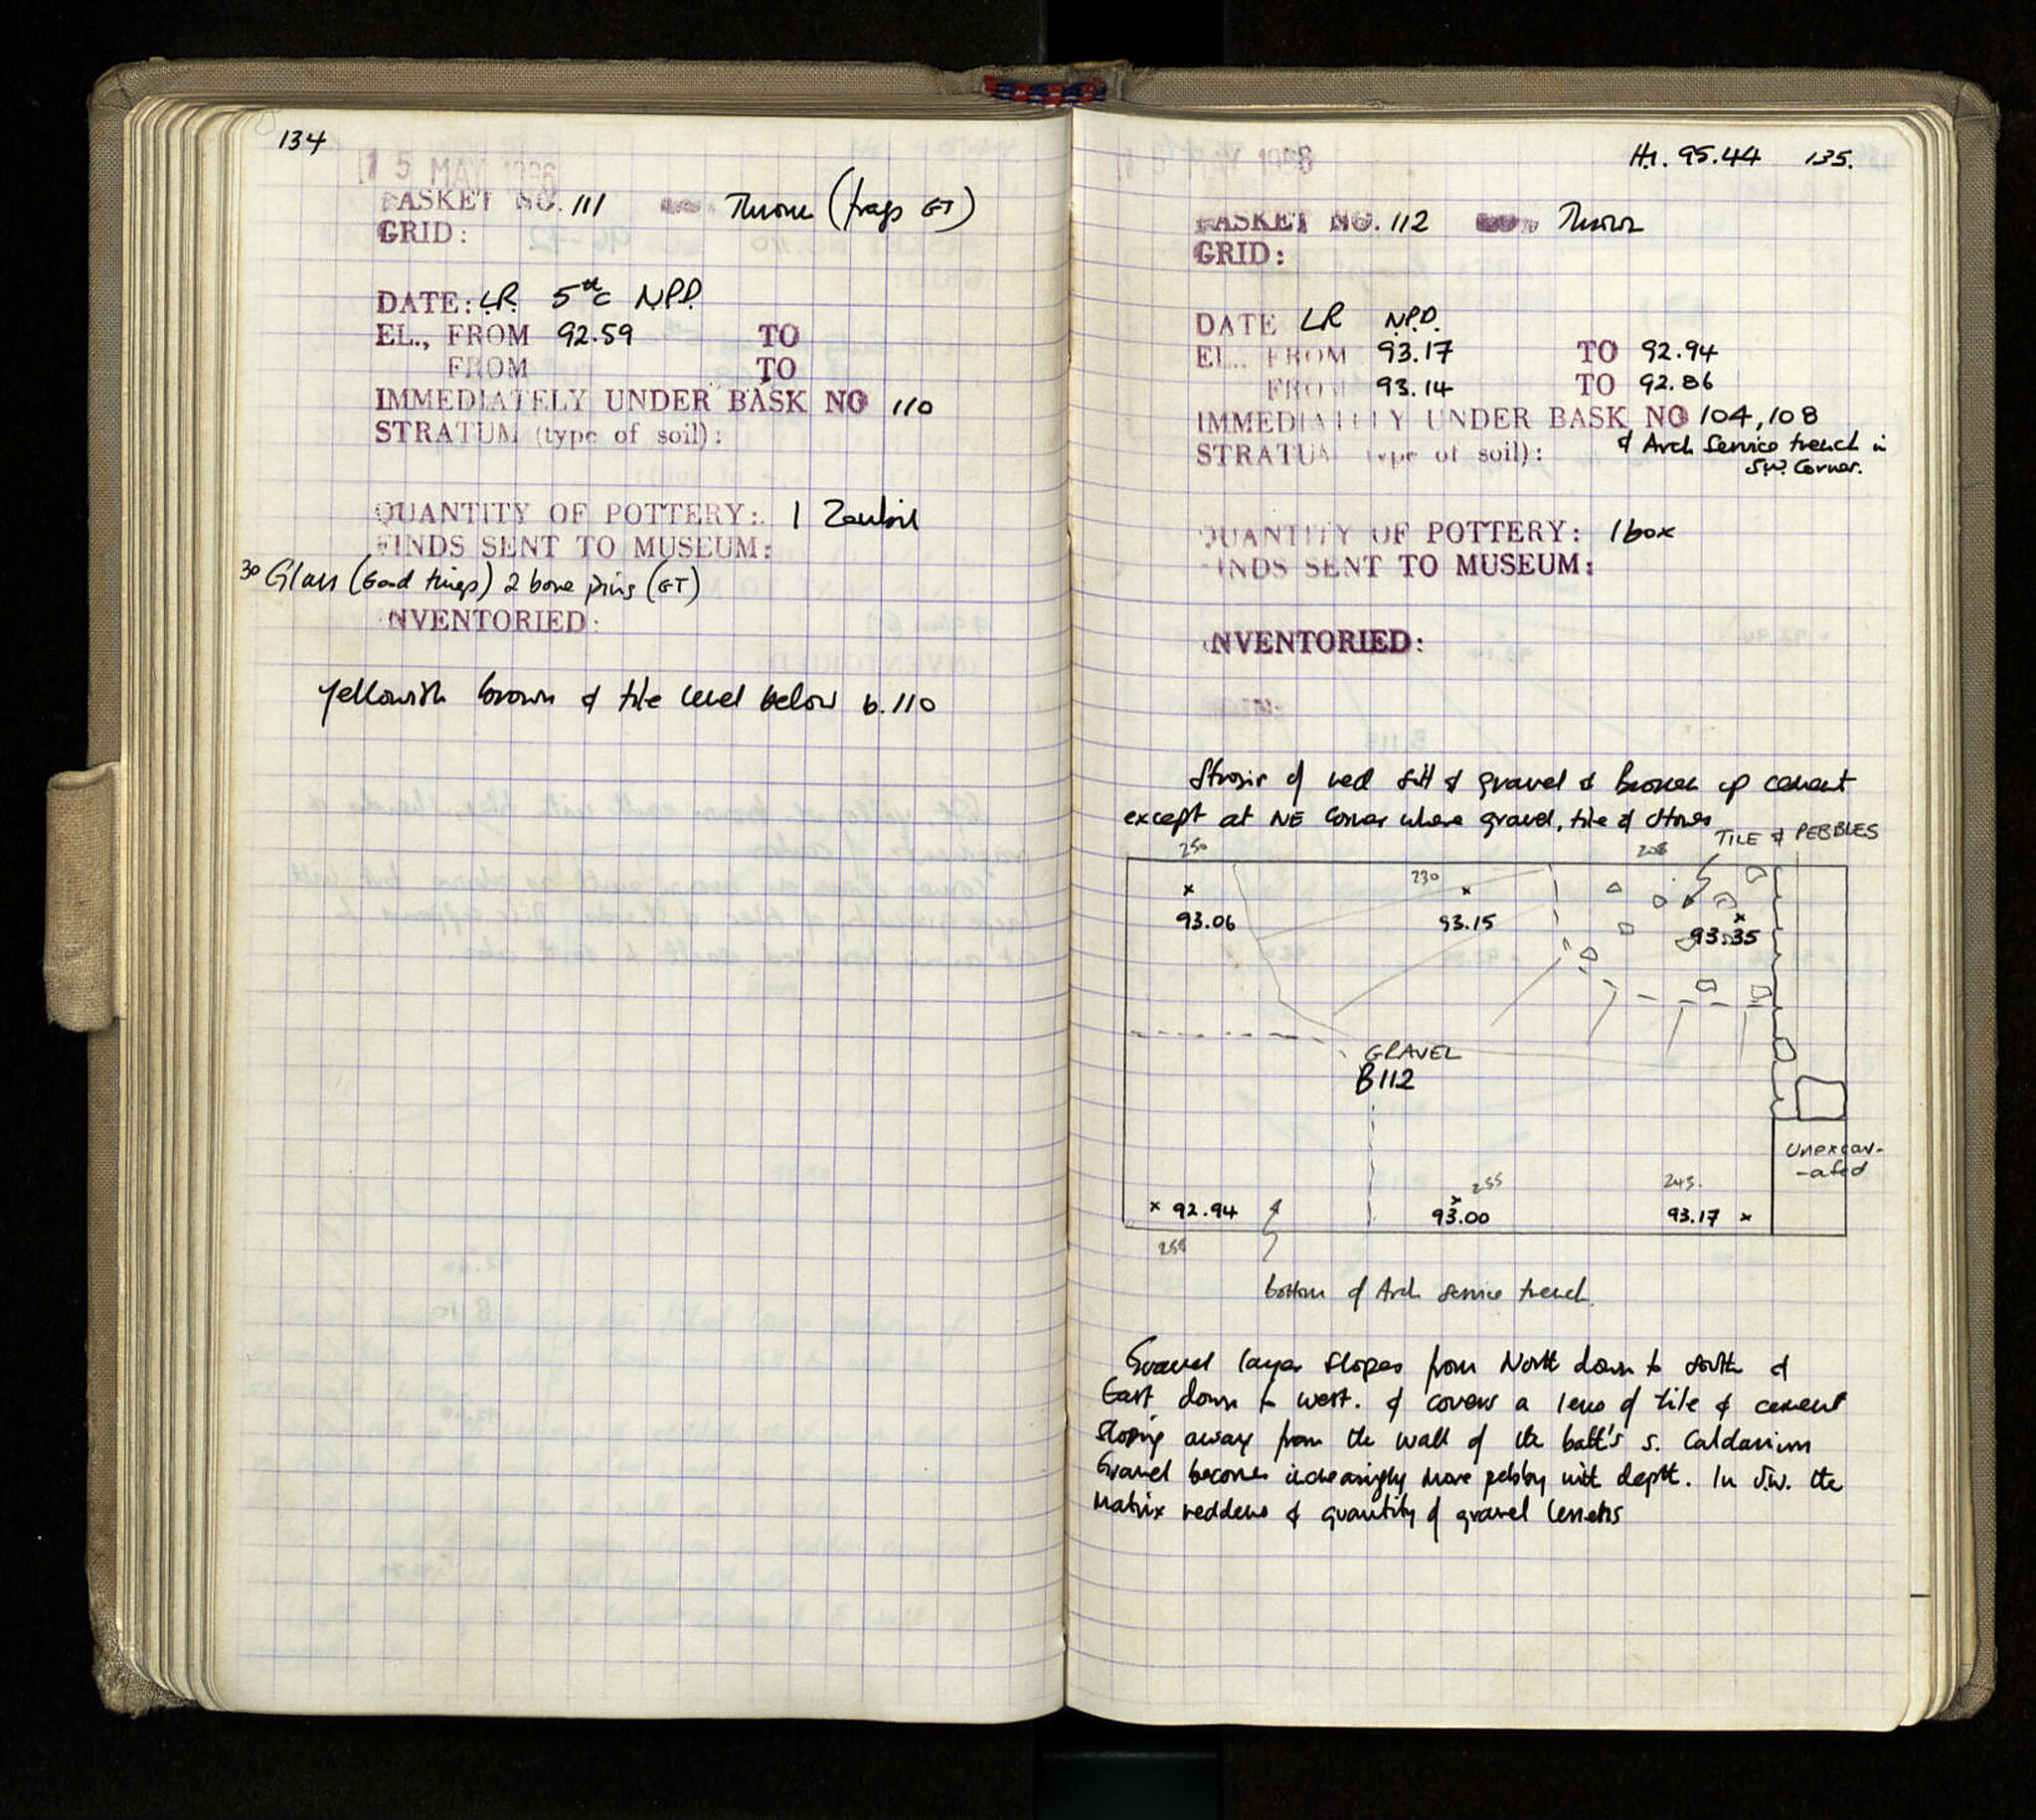 134
15 MAY 1986
BASKET NO. 111 Thrown (frags GT)
GRID:
DATE: LR 5th c N.P.D.
EL., FROM 92.59 TO
FROM TO
IMMEDIATELY UNDER BASK NO 110
STRATUM (type of soil):
QUANTITY OF POTTERY: 1 Zembil
FINDS SENT TO MUSEUM:
30 Glass (Good things) 2 bone pins (GT)
INVENTORIED:
Yellowish brown & tile level below b.110
Ht. 95.44 135.
MAY 1986
BASKET NO. 112 Thrown
GRID:
DATE LR N.P.D.
EL., FROM 93.17 TO 92.94
FROM 93.14 TO 92.86
IMMEDIATELY UNDER BASK NO 104, 108
& Arch Service trench in
STRATUM (type of soil):
S.W. Corner.
QUANTITY OF POTTERY: 1 box
FINDS SENT TO MUSEUM:
INVENTORIED:
of red silt & gravel & broken up cement
except at NE Corner where gravel, tile & stones
TILE & PEBBLES
250
208
230
93.06
93.15
93.35
GRAVEL
B112
Unexcav-
-ated
255
243.
92.94
93.00
93.17
258
bottom of Arch service trench.
Gravel layer slopes from North down to South &
East down to west. & covers a lens of tile & cement
sloping away from the wall of the bath's S. Caldarium
Gravel becomes increasingly more pebbly with depth. In S.W. the
matrix reddens & quantity of gravel lessens